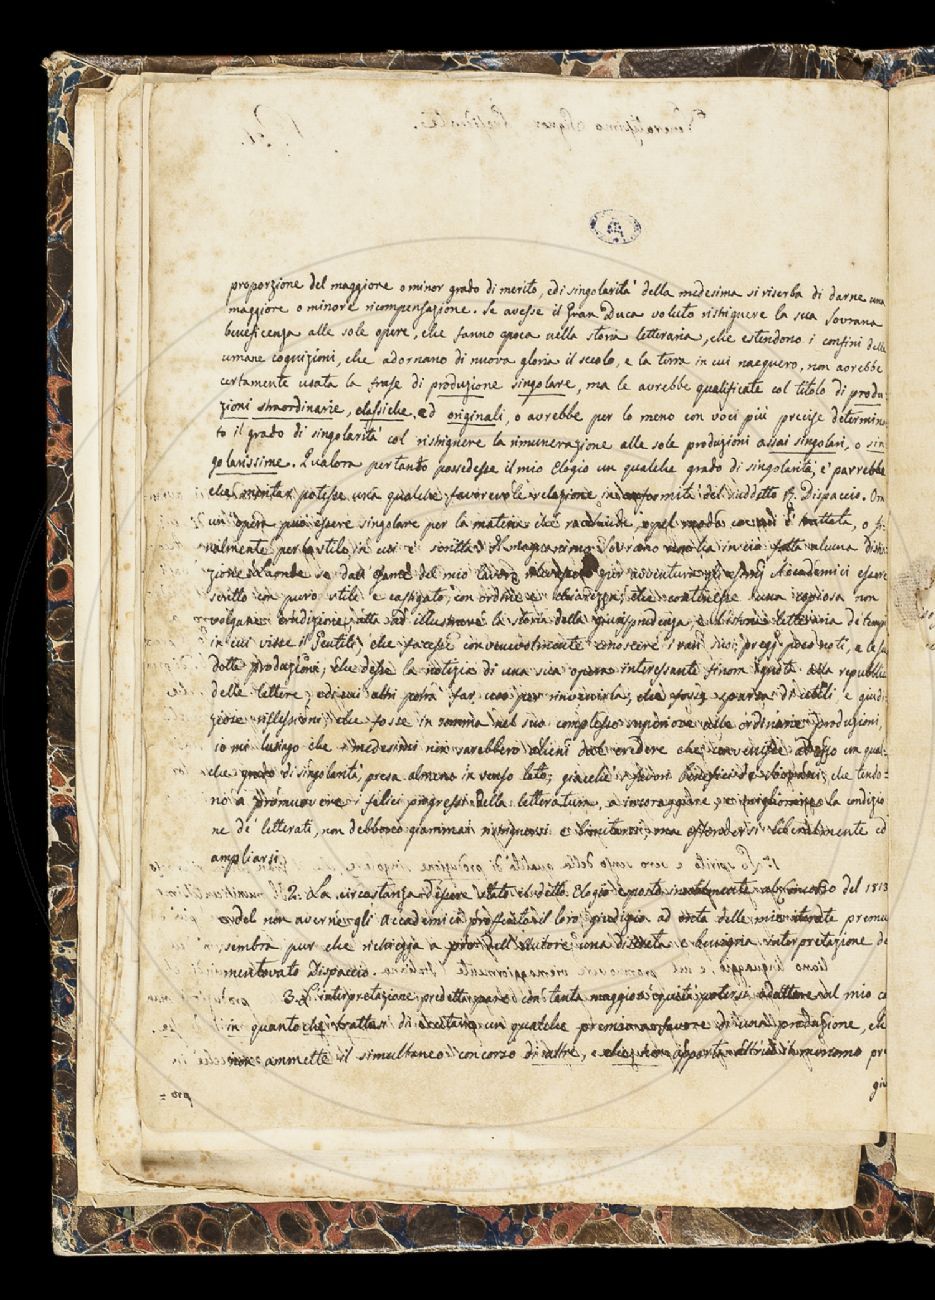 proporzione del maggiore o minor grado di merito, e di singolarita' della medesima si riserba di darne una
maggiore o minore ricompensazione. Se avesse il Gran Duca voluto ristrignere la sua Sovrana
beneficenza alle sole opere, che fanno epoca nella storia letteraria, che estendono i confini delle
umane cognizioni, che adornano di nuova gloria il secolo, e la terra in cui nacquero, non avrebbe
certamente usata la frase di produzione singolare, ma le avrebbe qualificate col titolo di produ
zioni straordinarie, classiche, ed originali, o avrebbe per lo meno con voci più precise determina
to il grado di singolarità col ristrignere la rimunerazione alle sole produzioni assai singolari, o sin
golarissime. Qualora pertanto possedesse il mio Elogio un qualche grado di singolarità, e' parrebbe
che meritar potesse una qualche favorevole relazione in conformità del suddetto R. Dispaccio. Ora
un' opera può essere singolare per la materia che racchiude, o pel modo con cui è trattata, o fi
nalmente per lo stile in cui è scritta. Il magnanimo Sovrano non ha in ciò fatta alcuna distin
zione. Laonde se dall' esame del mio lavoro per avventura gli Accademici essere
scritto con puro stile e castigato, con ordine e chiarezza, che contenesse una copiosa non
volgare erudizione atta ad illustrare la storia della giurisprudenza e letteraria de' tempi
in cui visse il Gentili, che facesse convenevolmente conoscere i rari suoi pregi poco noti, e le sue
dotte produzioni, che desse la notizia di una sua opera interessante finora ignota alla repubblica
delle lettere, ed cui altri potrà far uso per rinvenirla, che fosse sparso di utili e giudi
ziose riflessioni, che fosse in somma nel suo complesso superiore alle ordinarie produzioni,
io mi lusingo che i medesimi non sarebbero alieni dal credere che convenisse ad esso un qual=
che grado di singolarità, presa almeno in senso lato; giacchè i favori benefici de' Sovrani, che tendo=
no a promuovere i felici progressi della letteratura, a incoraggiare, e migliorare la condizio
ne de' letterati, non debbono giammai ristrignersi e limitarsi, ma estendersi liberalmente ed
ampliarsi.
2. La circostanza d'essere stato il detto Elogio esposto al Concorso del 1813
e del non averne gli Accademici proferito il loro giudizio ad onta delle mie iterate premu
sembra pur che richiegga a pro dell' Autore una discreta e benigna interpretazione de
mentovato Dispaccio.
3. L'interpretazione predetta pare con tanta maggior equità potersi adattare al mio ca
in quanto che trattasi di accettare un qualche premio a favore di una produzione, che
non ammette il simultaneo concorso di altre, e che non apporta altrui il minimo pre
giu